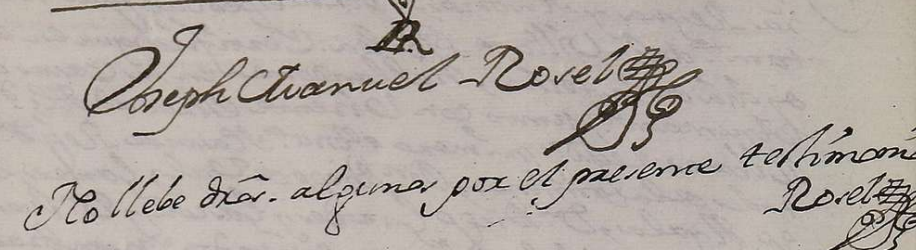 Joseph Manuel Rosel
No llebe dr̃os. algunos por el presente testimonio
Rosel